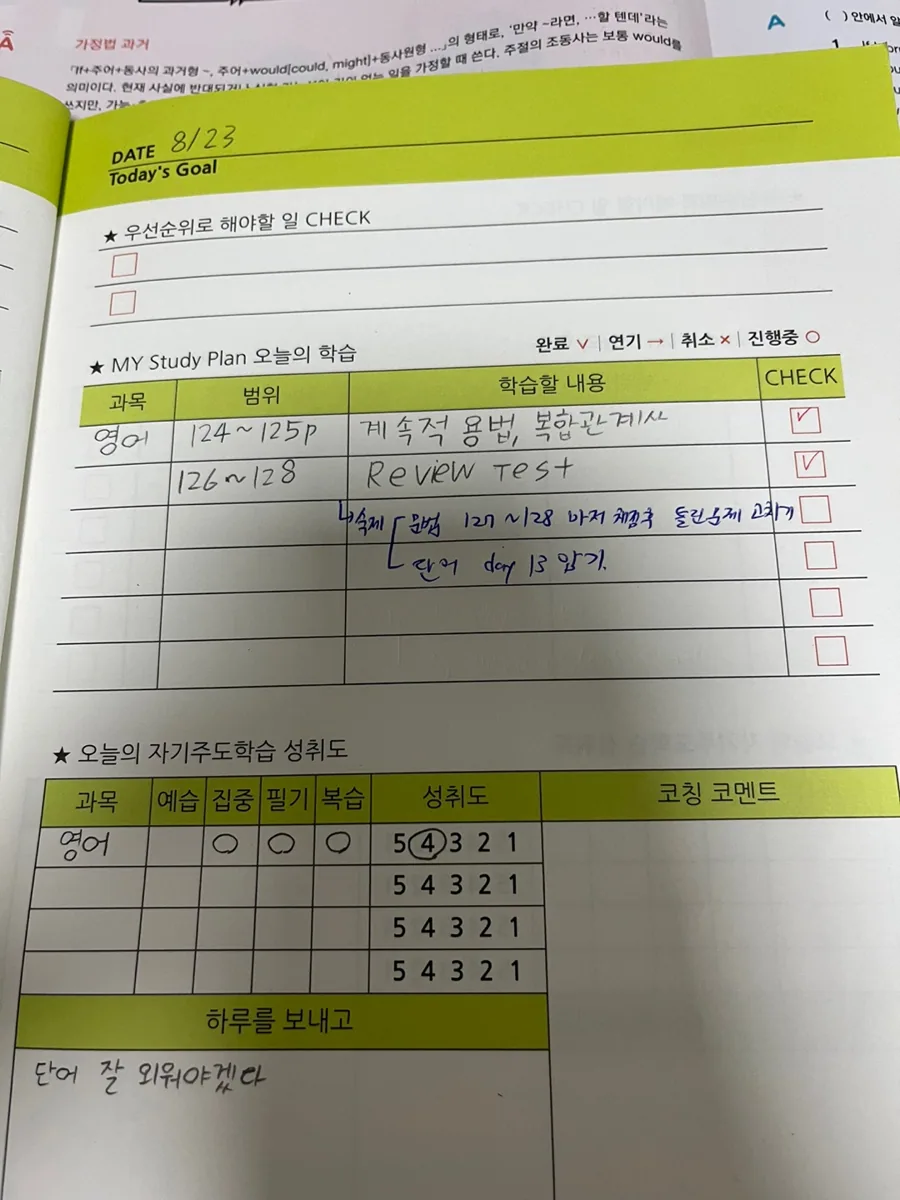 가정법 과거
「If+주어+동사의 과거형 ~, 주어+would[could, might]+동사원형 ....」의 형태로, '만약 ~라면, …할 텐데'라는
의미이다. 현재 사실에 반대되거나 없는 일을 가정할 때 쓴다. 주절의 조동사는 보통 would를
쓰지만, 가능
A ( ) 안에서 알
1
DATE 8/23
Today's Goal
★ 우선순위로 해야할 일 CHECK
★ MY Study Plan 오늘의 학습 완료 ∨ | 연기 → | 취소 × | 진행중 ○
과목 범위 학습할 내용 CHECK
영어 124~125p 계속적 용법, 복합관계사 ✓
126~128 Review Test ✓
↳숙제 문법 127~128 마저 채점후 틀린문제 고치기
단어 day 13 암기.
★ 오늘의 자기주도학습 성취도
과목 예습 집중 필기 복습 성취도 코칭 코멘트
영어 ○ ○ ○ 5 4 3 2 1
5 4 3 2 1
5 4 3 2 1
5 4 3 2 1
하루를 보내고
단어 잘 외워야겠다